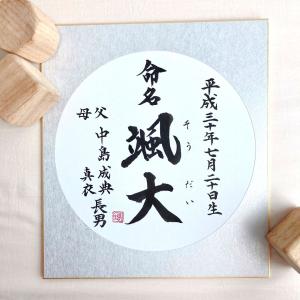 平成三十年七月二十日生
命名
颯大
そうだい
父 中島成典
母 真衣
長男